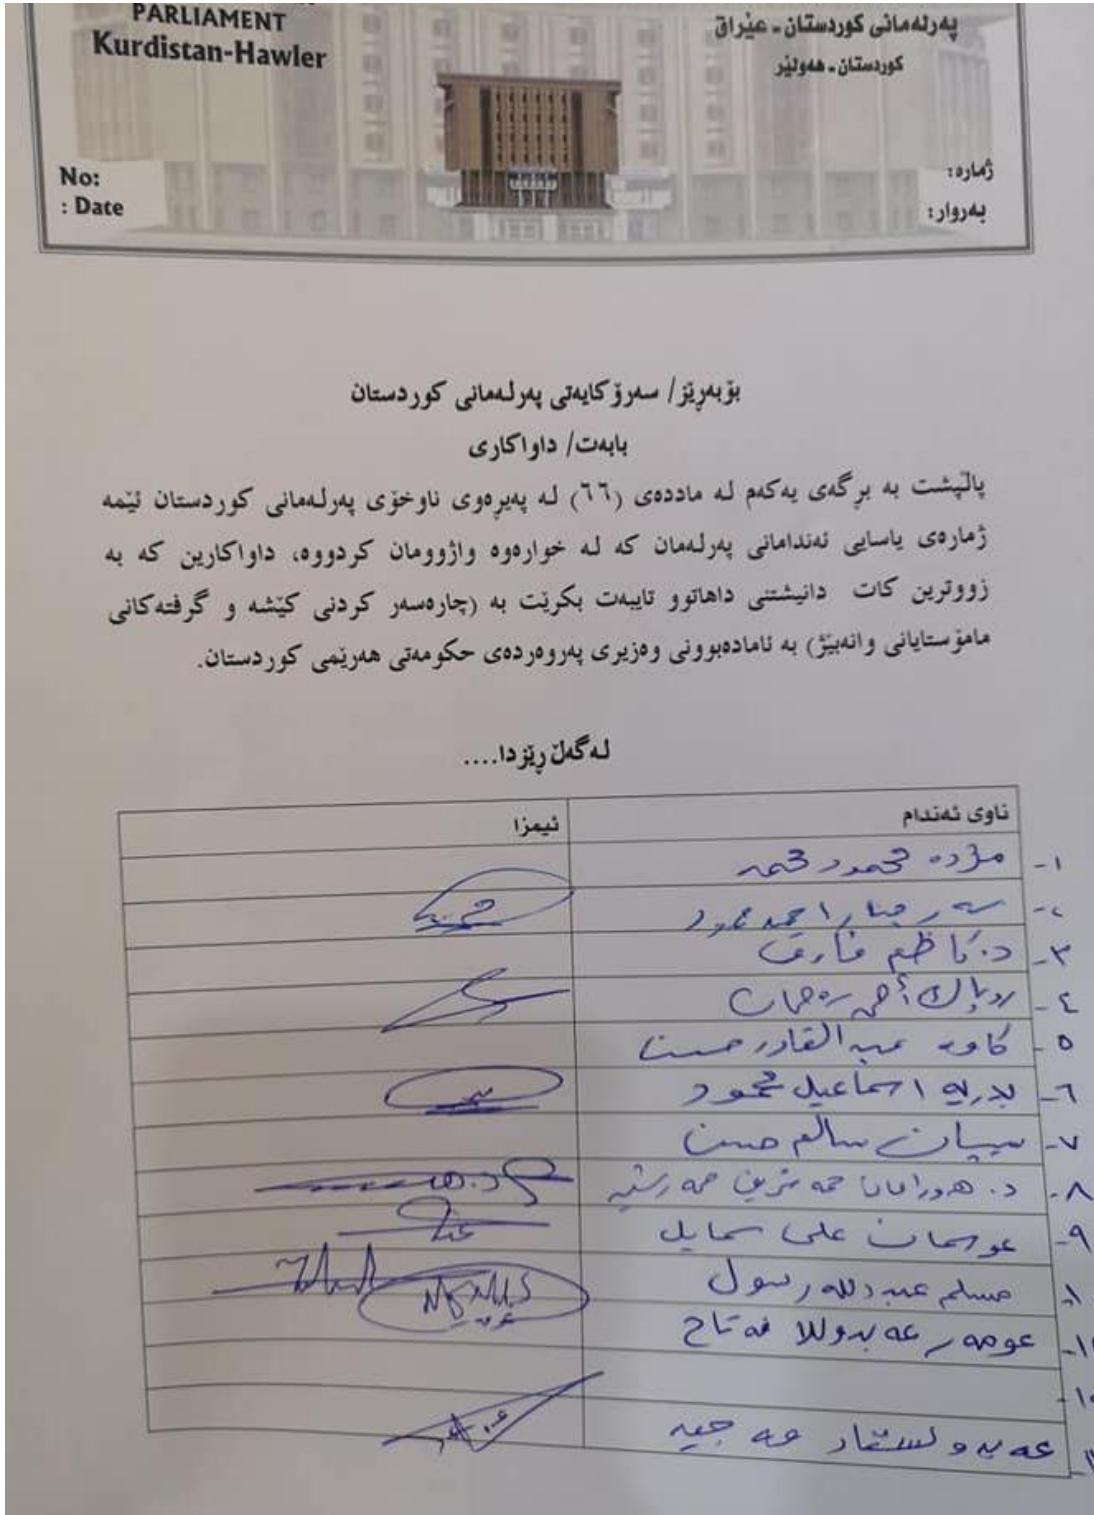 PARLIAMENT
Kurdistan-Hawler
No:
: Date
پەرلەمانی کوردستان - عێراق
کوردستان - هەولێر
ژمارە:
بەروار:
بۆبەڕێز/ سەرۆکایەتی پەرلەمانی کوردستان
بابەت/ داواکاری
پاڵپشت بە برگەی یەکەم لە ماددەی (٦٦) لە پەیڕەوی ناوخۆی پەرلەمانی کوردستان ئێمە
ژمارەی یاسایی ئەندامانی پەرلەمان کە لە خوارەوە واژوومان کردووە، داواکارین کە بە
زووترین کات دانیشتنی داهاتوو تایبەت بکرێت بە (چارەسەر کردنی کێشە و گرفتەکانی
مامۆستایانی وانەبێژ) بە ئامادەبوونی وەزیری پەروەردەی حکومەتی هەرێمی کوردستان.
لەگەڵ ڕێزدا....
ناوی ئەندام ئیمزا
١- مژدە محمود محمد
٢- احمد
٣- د. کاظم فاروق
٤-
٥- کاوە عبدالقادر حسن
٦- بدریە اسماعیل محمود
٧- سیپان سالم حسن
٨- د. هەورامان حمە شریف حمە رشید
٩- عوسمان علی سمایل
مسلم عبدللە رسول
عومەر عەبدوللا فەتاح
عەبدولستار مەجید